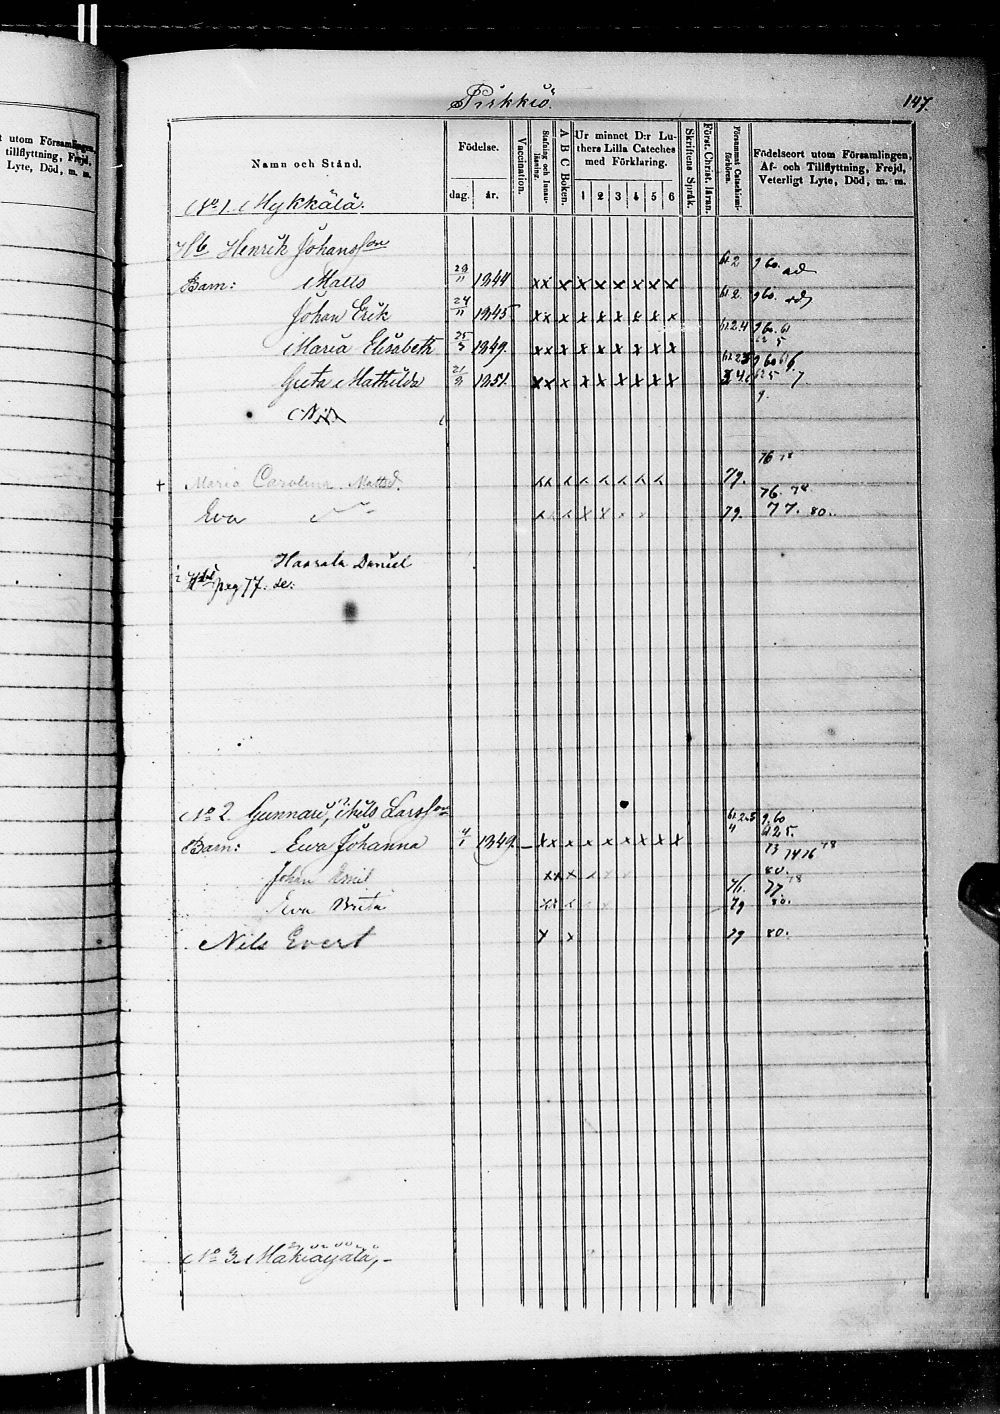 Pirkkiö.
147
t utom Församlingen,
tillflyttning, Frejd,
Lyte, Död, m. m.
Namn och Stånd.
Födelse.
dag.
år.
Vaccination.
Stafning och Innanläsning.
A B C Boken.
Ur minnet D:r Luthers Lilla Cateches med Förklaring.
1 2 3 4 5 6
Skriftens Språk.
Först. Christ. läran.
Försummat Catechismiförhören.
Födelseort utom Församlingen,
Af- och Tillflyttning, Frejd,
Veterligt Lyte, Död, m. m.
No 1. Mykkälä.
Hb Henrik Johansson
Barn: Matts 29/11 1844 x x x x x x x x x
Johan Erik 24/11 1845 x x x x x x x x x
Maria Elisabeth 25/3 1849. x x x x x x x x x
Greta Mathilda 21/9 1851. x x x x x x x x x
+ Maria Carolina Mattsd. 79. 76 78
Eva 79. 76. 78 77. 80.
Haarala Daniel
pag 77. se:
No 2 Gunnari, Nils Larsson
Barn: Ewa Johanna 4/1 1849 x x x x x x x x x
Johan Emil 80.
Eva Brita 76. 79 77. 78 80.
Nils Evert x x 79 80.
No 3. Mäkiäijälä,-